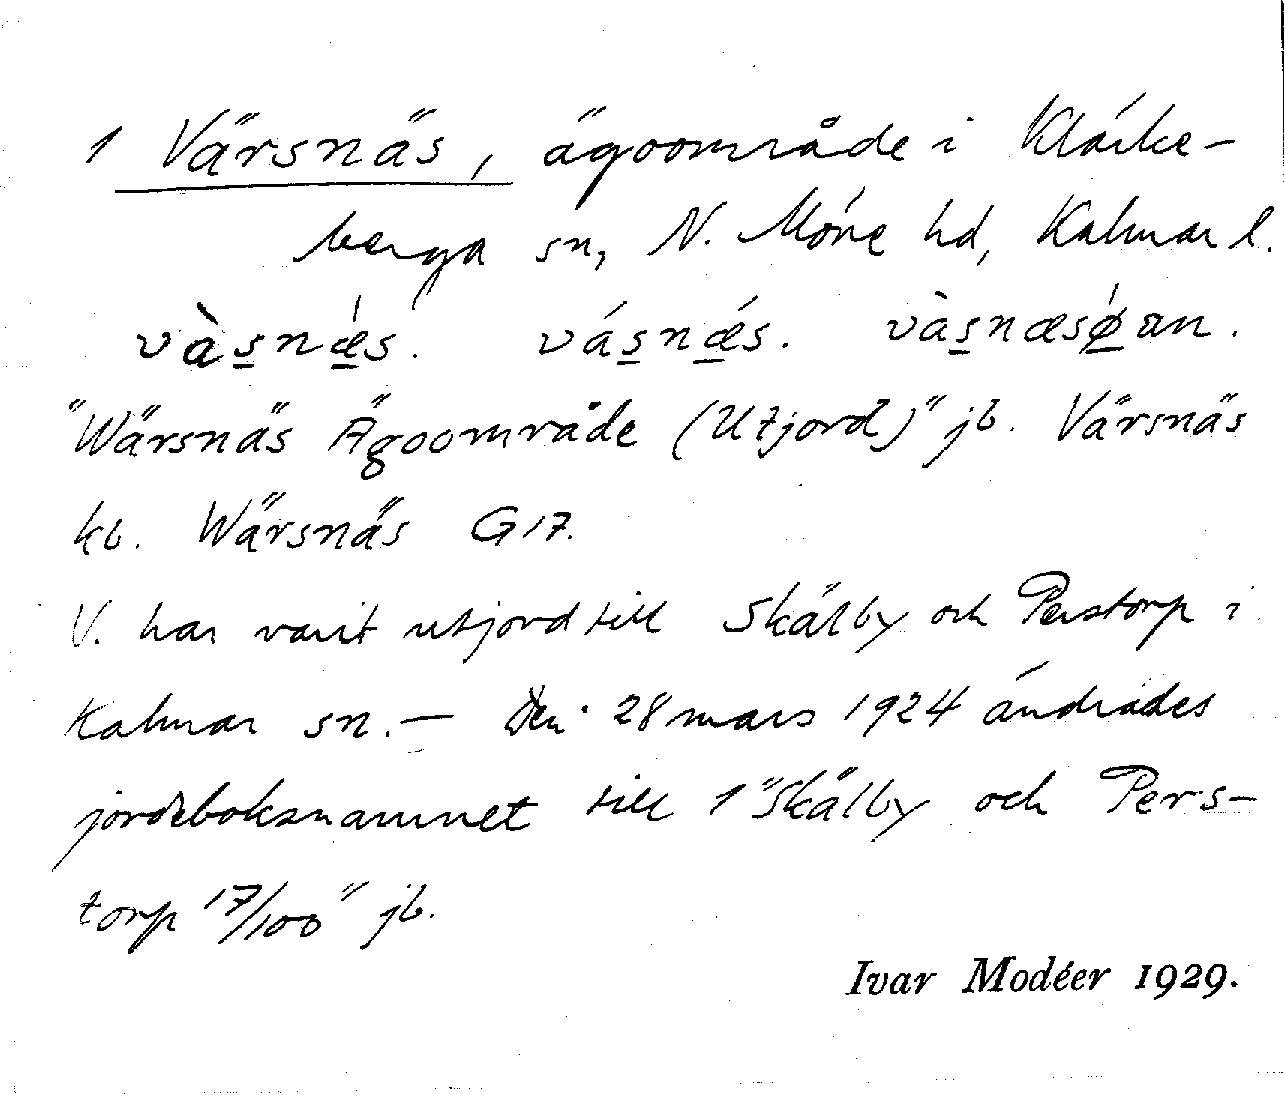 1 Värsnäs, ägoområde i Kläcke-
berga sn, N. Möre hd, Kalmar l.
vàs̲nǽ̲s. vás̲nǽ̲s. vàs̲næsǿ̲an.
"Wärsnäs Ägoområde (Utjord)" jb. Värsnäs
kb. Wärsnäs G17.
V. har varit utjord till Skälby och Perstorp i
Kalmar sn. — Den 28 mars 1924 ändrades
jordeboksnamnet till 1 "Skälby och Pers-
torp 17/100" jb.
Ivar Modéer 1929.